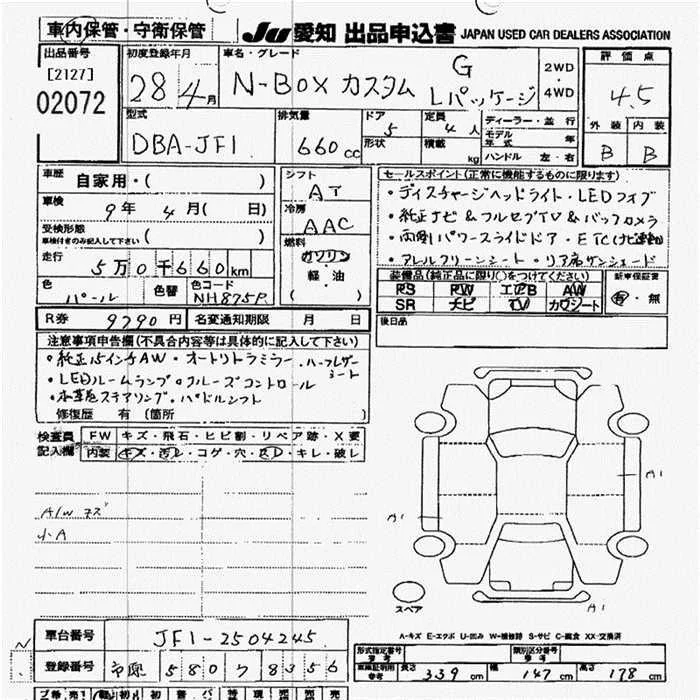 車内保管・守衛保管
JU 愛知 出品申込書 JAPAN USED CAR DEALERS ASSOCIATION
出品番号
[2127]
02072
初度登録年月
28年4月
車名・グレード
N-BOX カスタム G Lパッケージ
2WD・4WD
評価点
4.5
外装 内装
B B
型式
DBA-JF1
排気量
660cc
ドア 5
形状
定員 4人
積載 kg
ディーラー・並行
モデル年式 年
ハンドル 左・右
車歴 自家用・( )
車検 9年 4月( 日)
受検形態
車検付きのみ記入して下さい ( )
走行 5万0千660km
色 パール
色替
色コード NH875P
シフト AT
冷房 AAC
燃料 ガソリン
軽・油
( )
セールスポイント(正常に機能するものに限ります)
・ディスチャージヘッドライト・LEDフォグ
・純正ナビ&フルセグTV&バックカメラ
・両側パワースライドドア・ETC(ナビ連動)
・アレルクリーンシート・リア席サンシェード
装備品(純正品に限り○をつけてください)
PS PW エアB AW
SR ナビ TV カワシート
新車保証書
有・無
R券 9790円 名変通知期限 月 日
後日品
注意事項申告欄(不具合内容等は具体的に記入して下さい)
・純正15インチAW・オートリトラミラー・ハーフレザーシート
・LEDルームランプ・クルーズコントロール
・本革巻ステアリング・パドルシフト
修復歴 有(箇所 )
検査員記入欄
FW キズ・飛石・ヒビ割・リペア跡・X要
内装 キズ・汚レ・コゲ・穴・凹レ・キレ・破レ
A/W キズ
小A
A1
A1
A1
スペア
A-キズ E-エクボ U-凹み W-補修跡 S-サビ C-腐食 XX-交換済
車台番号 JF1-2504245
登録番号 580 8356
形式指定番号 参考
類別区分番号 参考
車検証明用 参考 長さ 339cm 幅 147cm 高さ 178cm